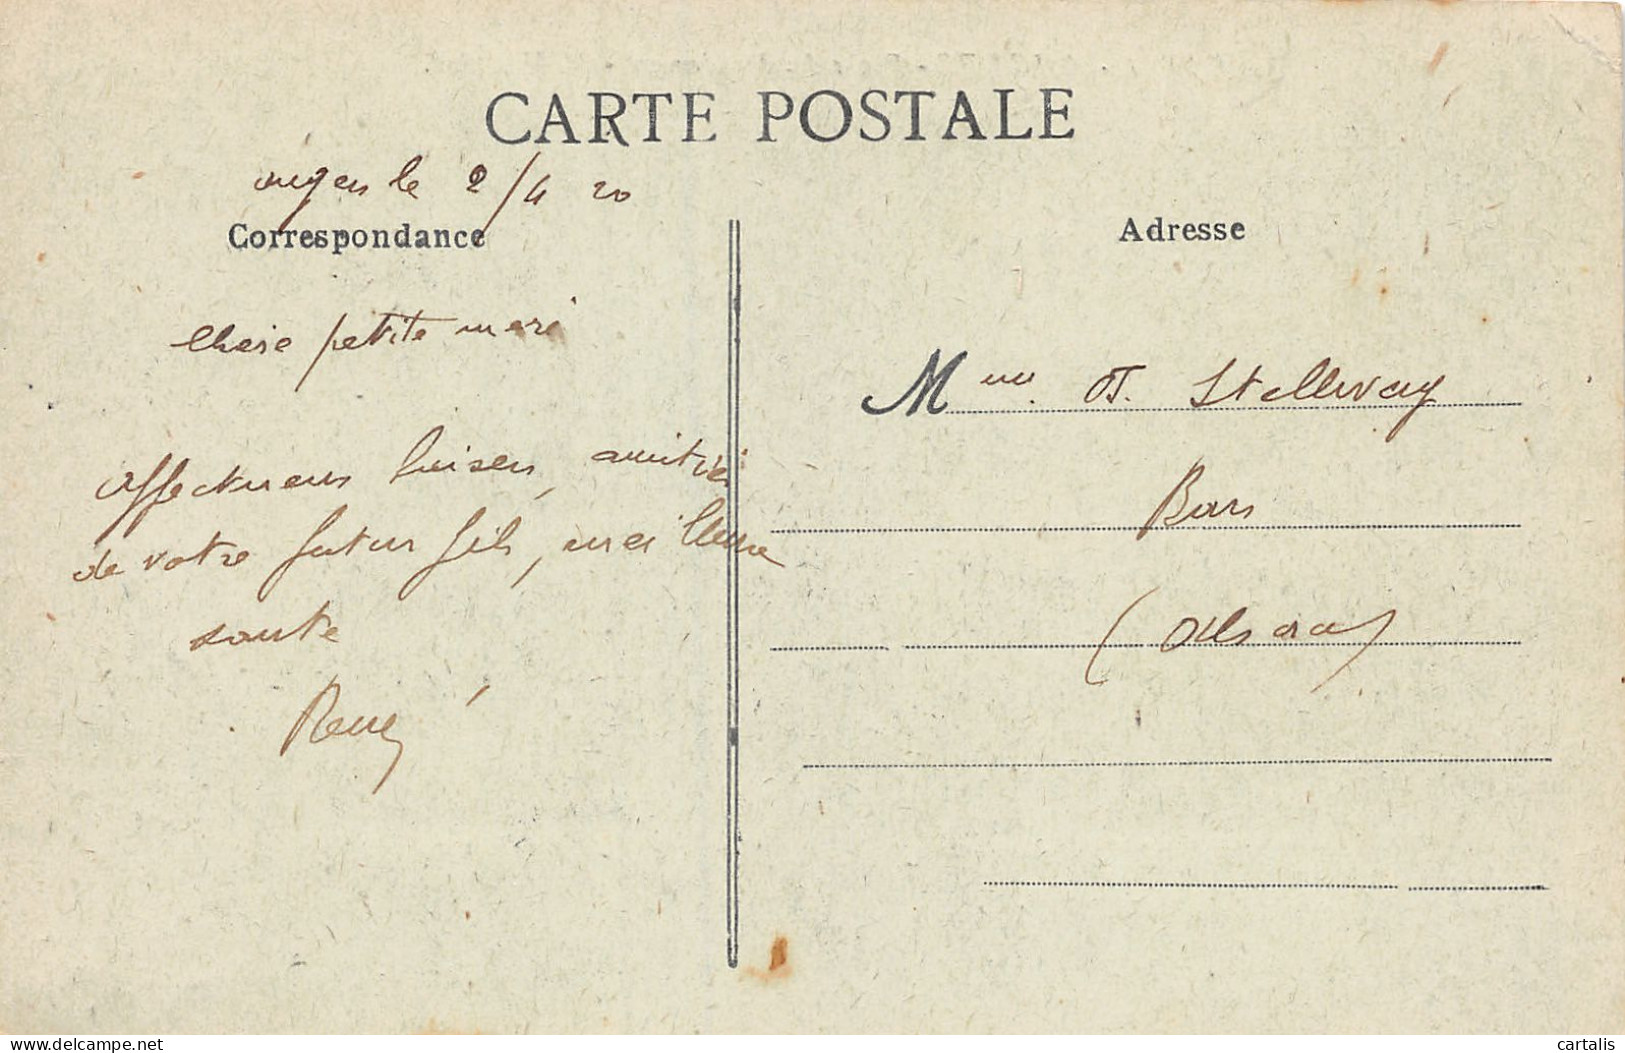 CARTE POSTALE
le 2/4 20
Correspondance
Adresse
Chère petite
Affectueux baisers, amitiés
de votre futur fils, meilleure
santé
René
Mme
Barr
(Alsace)
www.delcampe.net
cartalis